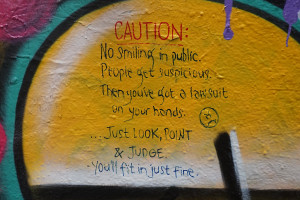 CAUTION:
No smiling in public.
People get suspicious.
Then you've got a lawsuit
on your hands.
...JUST LOOK, POINT
& JUDGE.
-You'll fit in just fine.